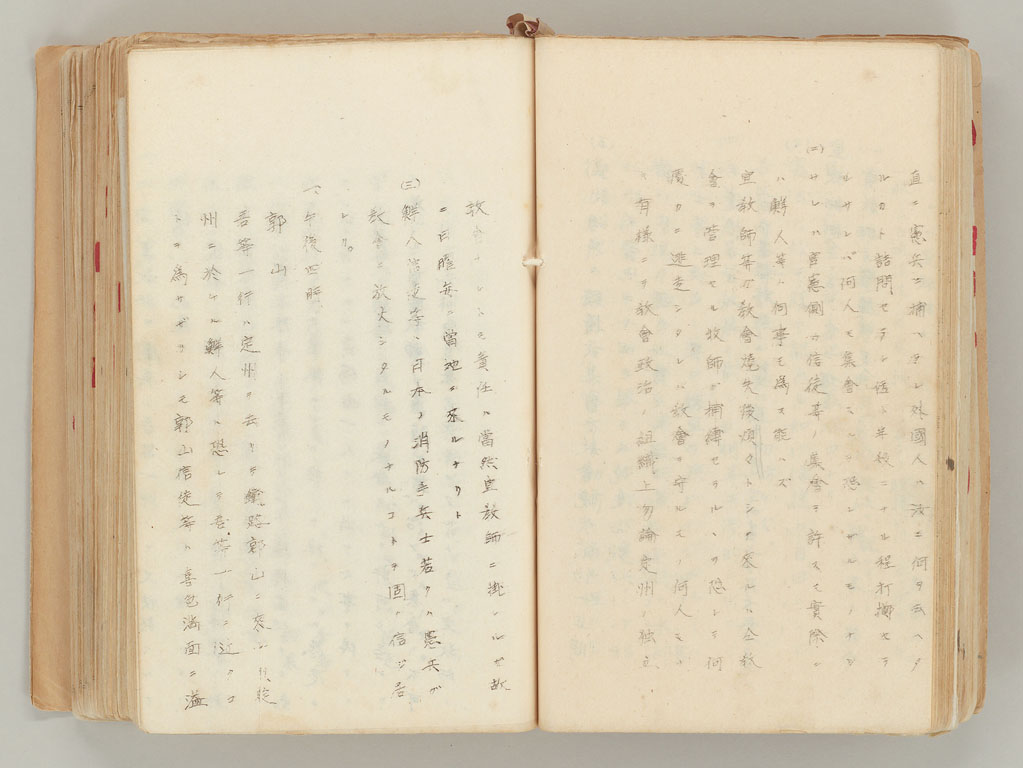 直ニ憲兵ニ捕ヘラレ外國人ハ汝ニ何ヲ云ヘタ
ルカト詰問セラレ後ト半殺ニナル程打擲セラ
ルサレバ何人モ集會ニ隠レザルモノナシ
(二)サレハ官憲側カ信徒等ノ集會ヲ許スモ實際ニ
ハ鮮人等ハ何事モ為ス能ハズ
宣敎師等ガ敎會燒失後頻々トシテ來ルハ仝敎
會ヲ管理セル牧師ガ捕縛セラルヽヲ隠レテ何
處カニ逃走シタレハ敎會ヲ守ルモノ何人モナ
キ有樣ニテ敎會政治ノ組織上勿論定州ノ獨立
敎會ナレトモ責任ハ當然宣敎師ニ掛レルガ故
ニ日曜每ニ當地ニ來ルナリト
(三)鮮人信徒等ハ日本ノ消防手兵士若クハ憲兵ガ
敎會ニ放火シタルモノナルコトヲ固ク信ジ居
レリ。
一、午後四時
郭山
吾等一行ハ定州ヲ去リテ鐵路郭山ニ來ル
州ニ於ケル鮮人等ハ恐レテ吾等一行ニ近ツクコ
トヲ為サザリシモ郭山信徒等ハ喜色滿面ニ溢